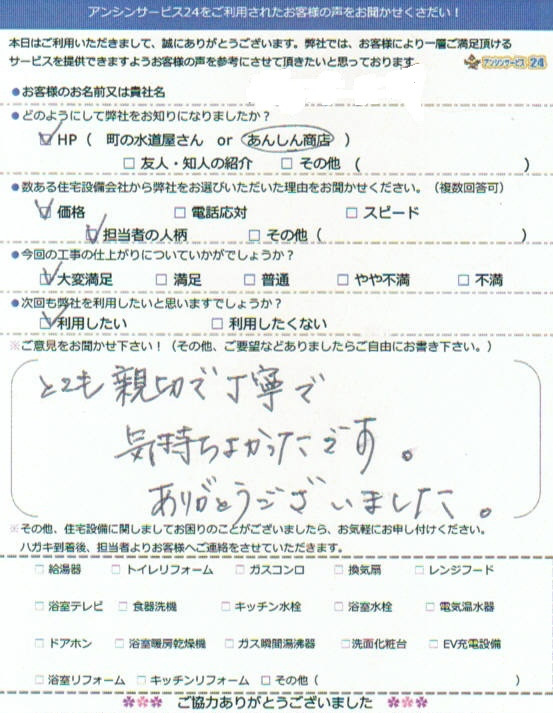 アンシンサービス24をご利用されたお客様の声をお聞かせくさだい！
本日はご利用いただきまして、誠にありがとうございます。弊社では、お客様により一層ご満足頂ける
サービスを提供できますようお客様の声を参考にさせて頂きたいと思っております
アンシンサービス24
●お客様のお名前又は貴社名
●どのようにして弊社をお知りになりましたか？
☑HP（ 町の水道屋さん or あんしん商店 ）
□友人・知人の紹介 □その他（ ）
●数ある住宅設備会社から弊社をお選びいただいた理由をお聞かせください。（複数回答可）
☑価格 □電話応対 □スピード
☑担当者の人柄 □その他（ ）
●今回の工事の仕上がりについていかがでしょうか？
☑大変満足 □満足 □普通 □やや不満 □不満
●次回も弊社を利用したいと思いますでしょうか？
☑利用したい □利用したくない
※ご意見をお聞かせ下さい！（その他、ご要望などありましたらご自由にお書き下さい。）
とても親切で丁寧で
気持ちよかったです。
ありがとうございました。
※その他、住宅設備に関しましてお困りのことがございましたら、お気軽にお申し付けください。
ハガキ到着後、担当者よりお客様へご連絡をさせていただきます。
□給湯器 □トイレリフォーム □ガスコンロ □換気扇 □レンジフード
□浴室テレビ □食器洗機 □キッチン水栓 □浴室水栓 □電気温水器
□ドアホン □浴室暖房乾燥機 □ガス瞬間湯沸器 □洗面化粧台 □EV充電設備
□浴室リフォーム □キッチンリフォーム □その他（ ）
ご協力ありがとうございました